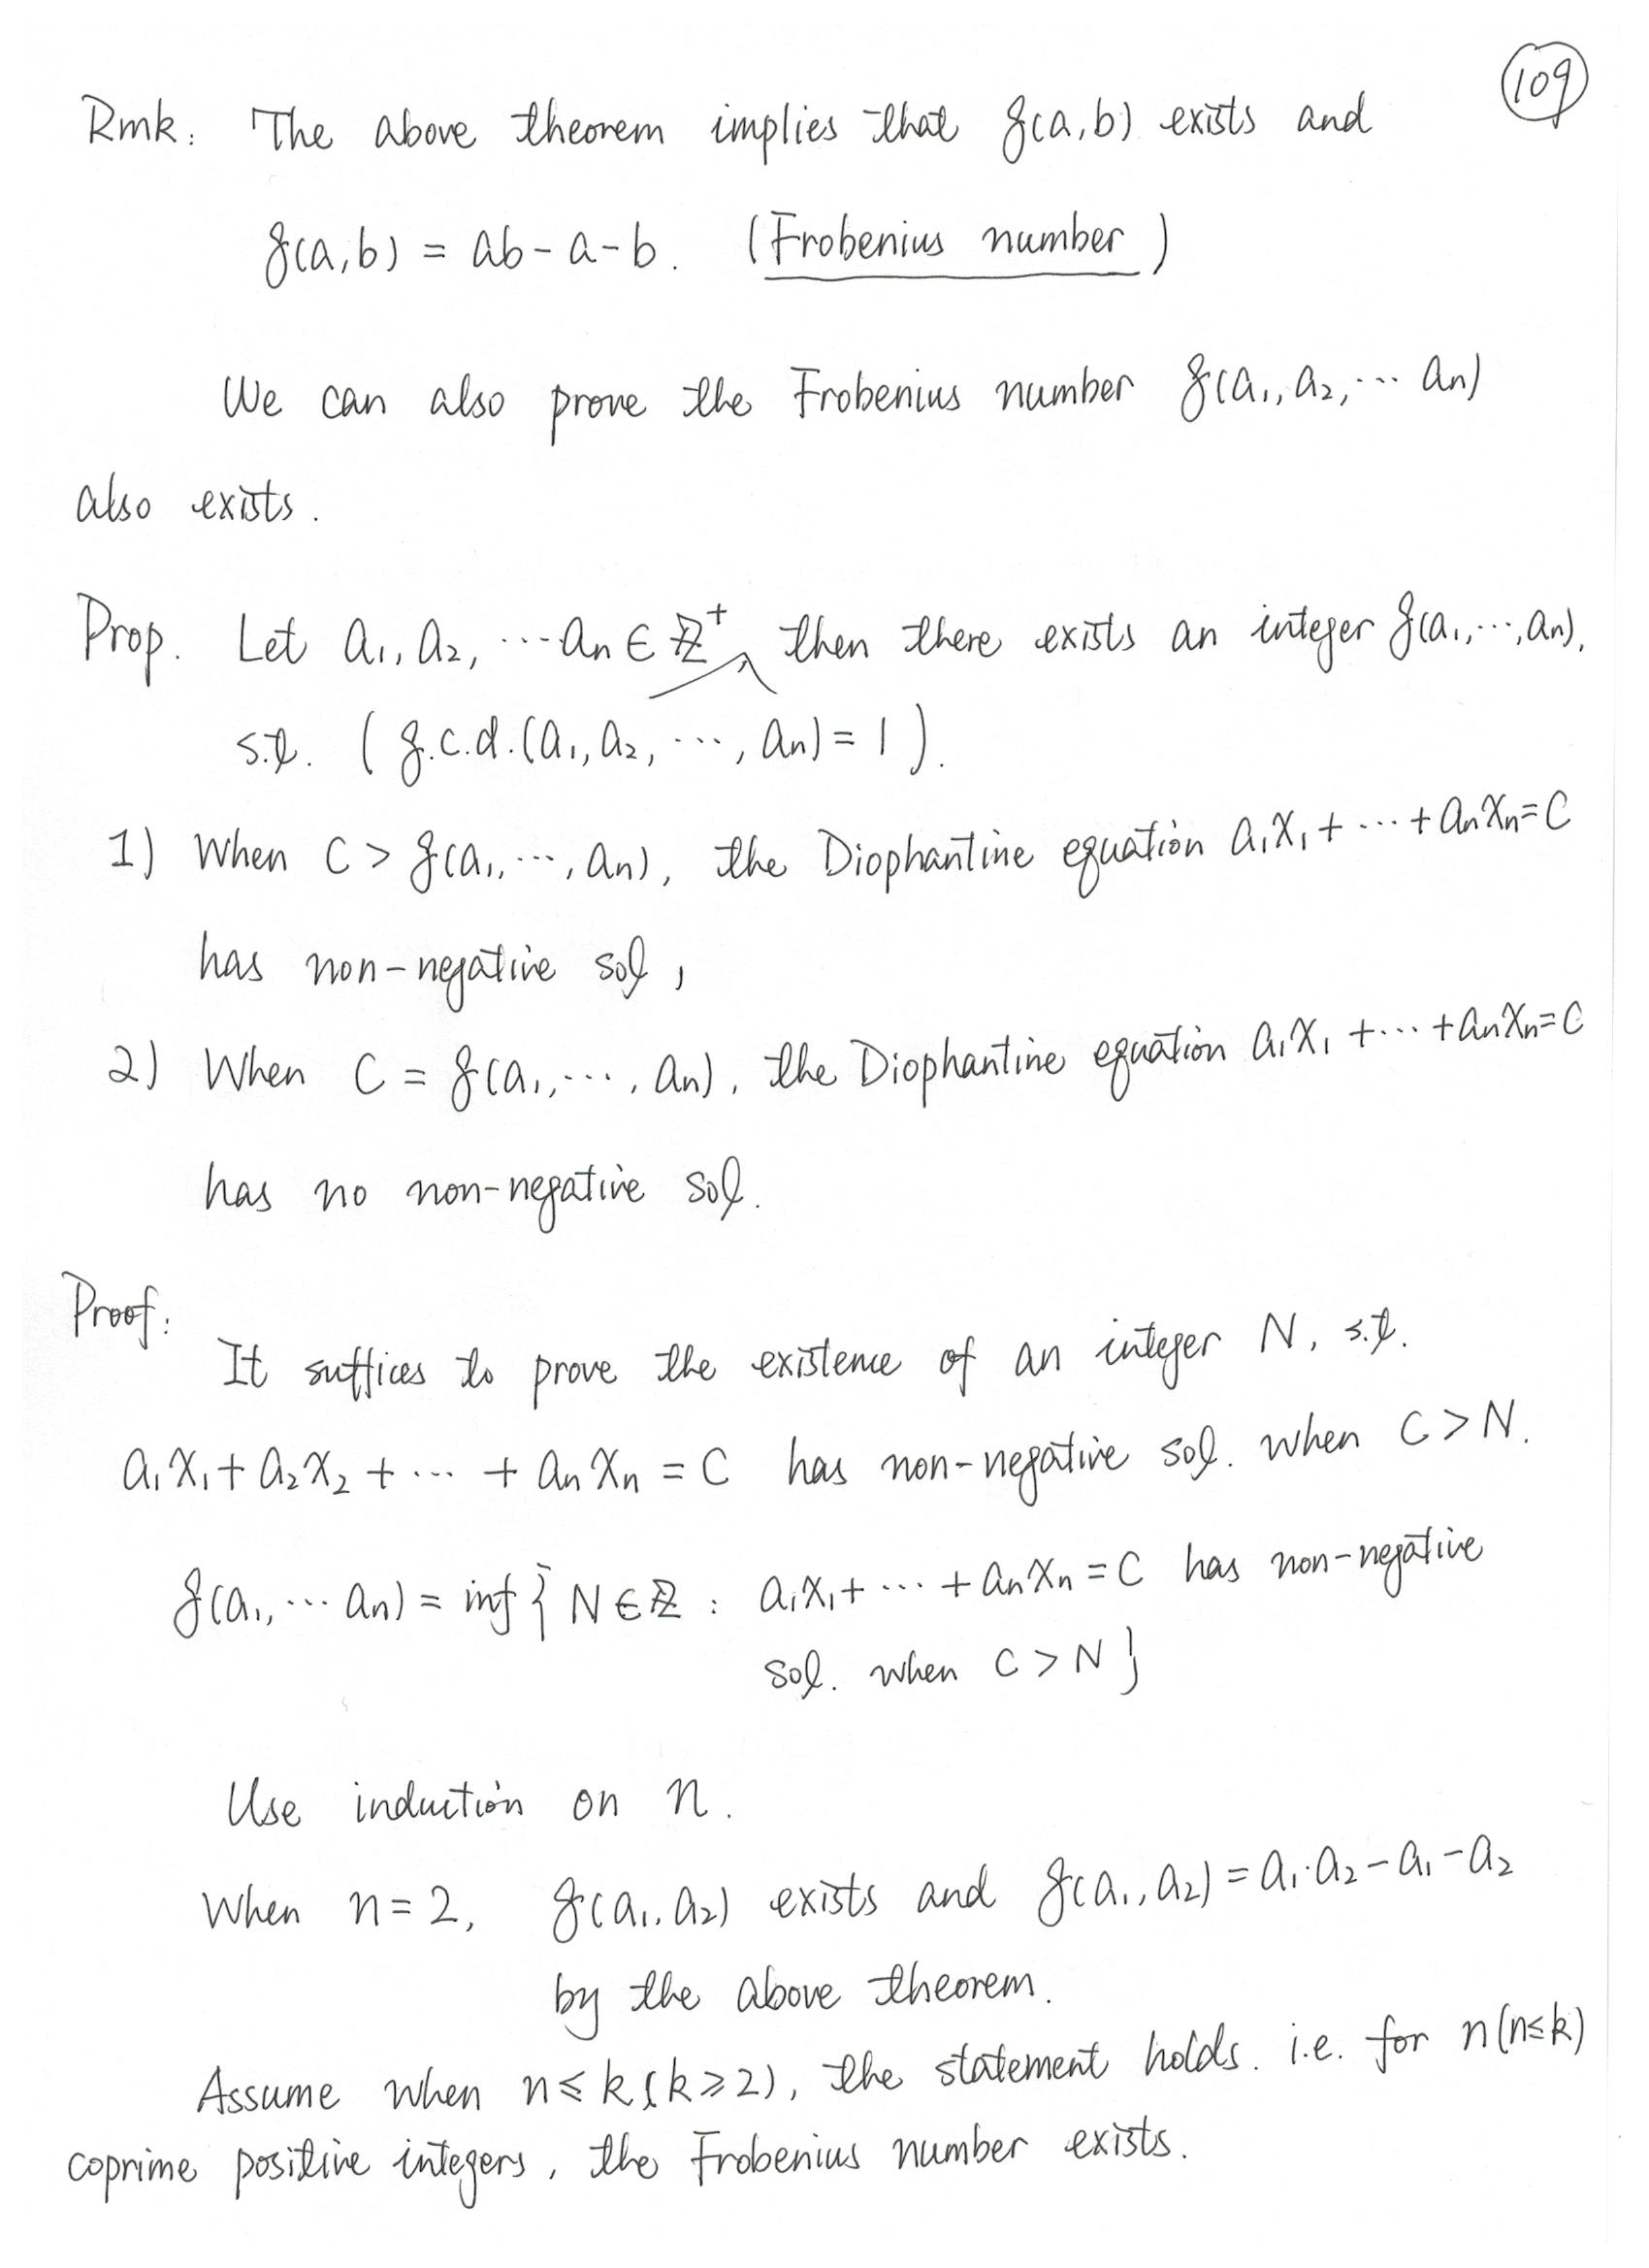 109
Rmk: The above theorem implies that g(a,b) exists and
g(a,b) = ab-a-b. (Frobenius number)
We can also prove the Frobenius number g(a₁, a₂, ⋯ aₙ)
also exists.
Prop. Let a₁, a₂, ⋯ aₙ ∈ ℤ⁺ ∧ then there exists an integer g(a₁, ⋯, aₙ),
s.t. ( g.c.d.(a₁, a₂, ⋯, aₙ) = 1 ).
1) When C > g(a₁, ⋯, aₙ), the Diophantine equation a₁x₁ + ⋯ + aₙxₙ = C
has non-negative sol,
2) When C = g(a₁, ⋯, aₙ), the Diophantine equation a₁x₁ + ⋯ + aₙxₙ = C
has no non-negative sol.
Proof:
It suffices to prove the existence of an integer N, s.t.
a₁x₁ + a₂x₂ + ⋯ + aₙxₙ = C has non-negative sol. when C > N.
g(a₁, ⋯ aₙ) = inf { N ∈ ℤ : a₁x₁ + ⋯ + aₙxₙ = C has non-negative
sol. when C > N }
Use induction on n.
When n = 2, g(a₁, a₂) exists and g(a₁, a₂) = a₁·a₂ - a₁ - a₂
by the above theorem.
Assume when n ≤ k (k ≥ 2), the statement holds. i.e. for n (n ≤ k)
coprime positive integers, the Frobenius number exists.